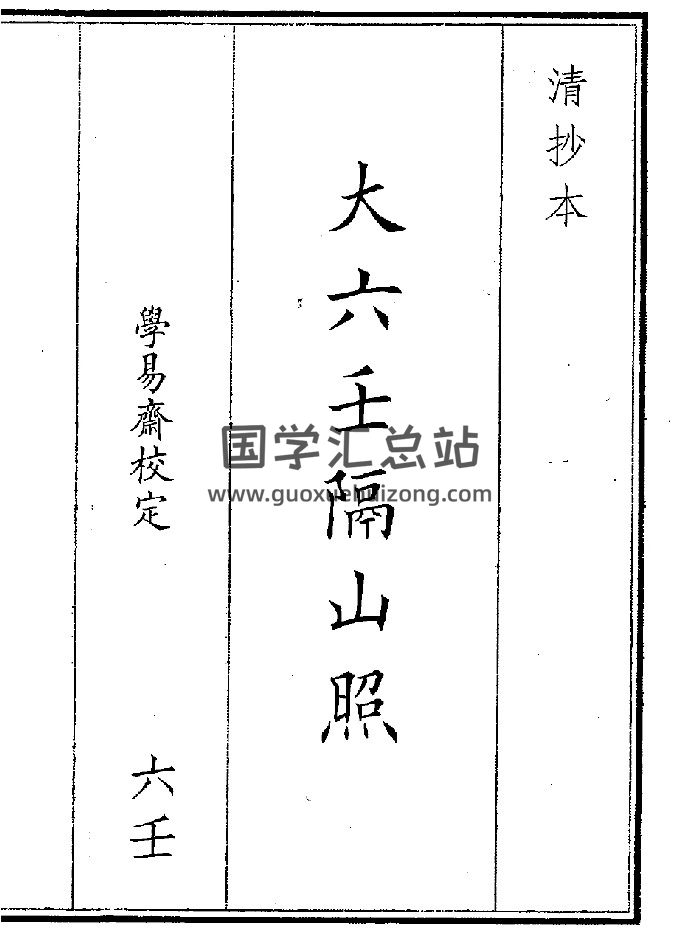 清抄本
大六壬隔山照
學易齋校定
六壬
国学汇总站
www.guoxuehuizong.com